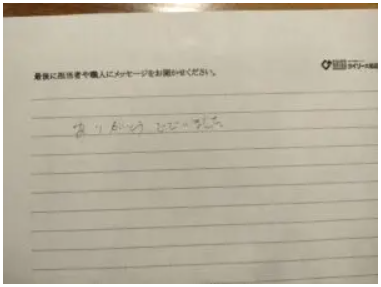 最後に担当者や職人にメッセージをお聞かせください。
ありがとうございました